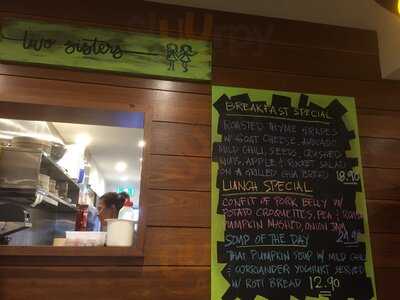 two sisters
BREAKFAST SPECIAL
ROASTED THYME GRAPES
W/ GOAT CHEESE, AVOCADO
MILD CHILI, SEEDS, CRUSHED
NUTS, APPLE & ROCKET SALAD
ON A CHIA BREAD 18.90
LUNCH SPECIAL
CONFIT OF PORK BELLY W/
POTATO CROQUETTES, PEA &
PUMPKIN MASHED, ONION JAM
SOUP OF THE DAY
THAI PUMPKIN SOUP W/ MILD CHILI
& CORIANDER YOGHURT SERVED
W/ ROTI BREAD 12.90